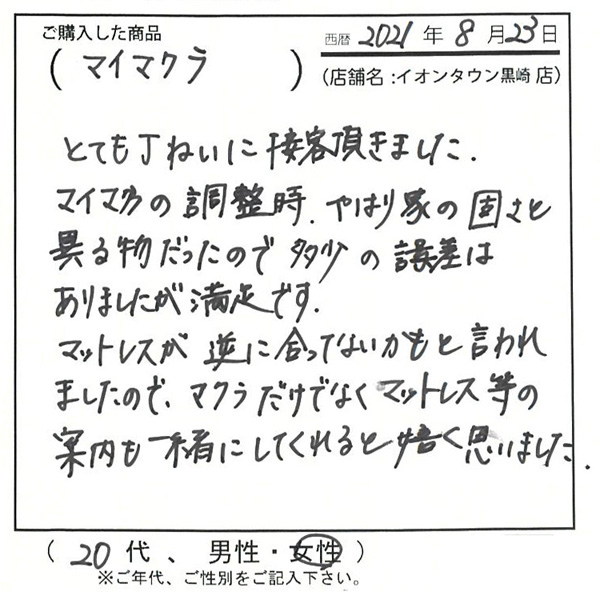 ご購入した商品
西暦 2021 年 8 月 23 日
( マイマクラ )
(店舗名:イオンタウン黒崎 店)
とても丁ねいに接客頂きました.
マイマクラの調整時、やはり家の固さと
異る物だったので多少の誤差は
ありましたが満足です.
マットレスが逆に合ってないかもと言われ
ましたので、マクラだけでなくマットレス等の
案内も一緒にしてくれると 思いました.
( 20 代 、 男性・女性 )
※ご年代、ご性別をご記入下さい。